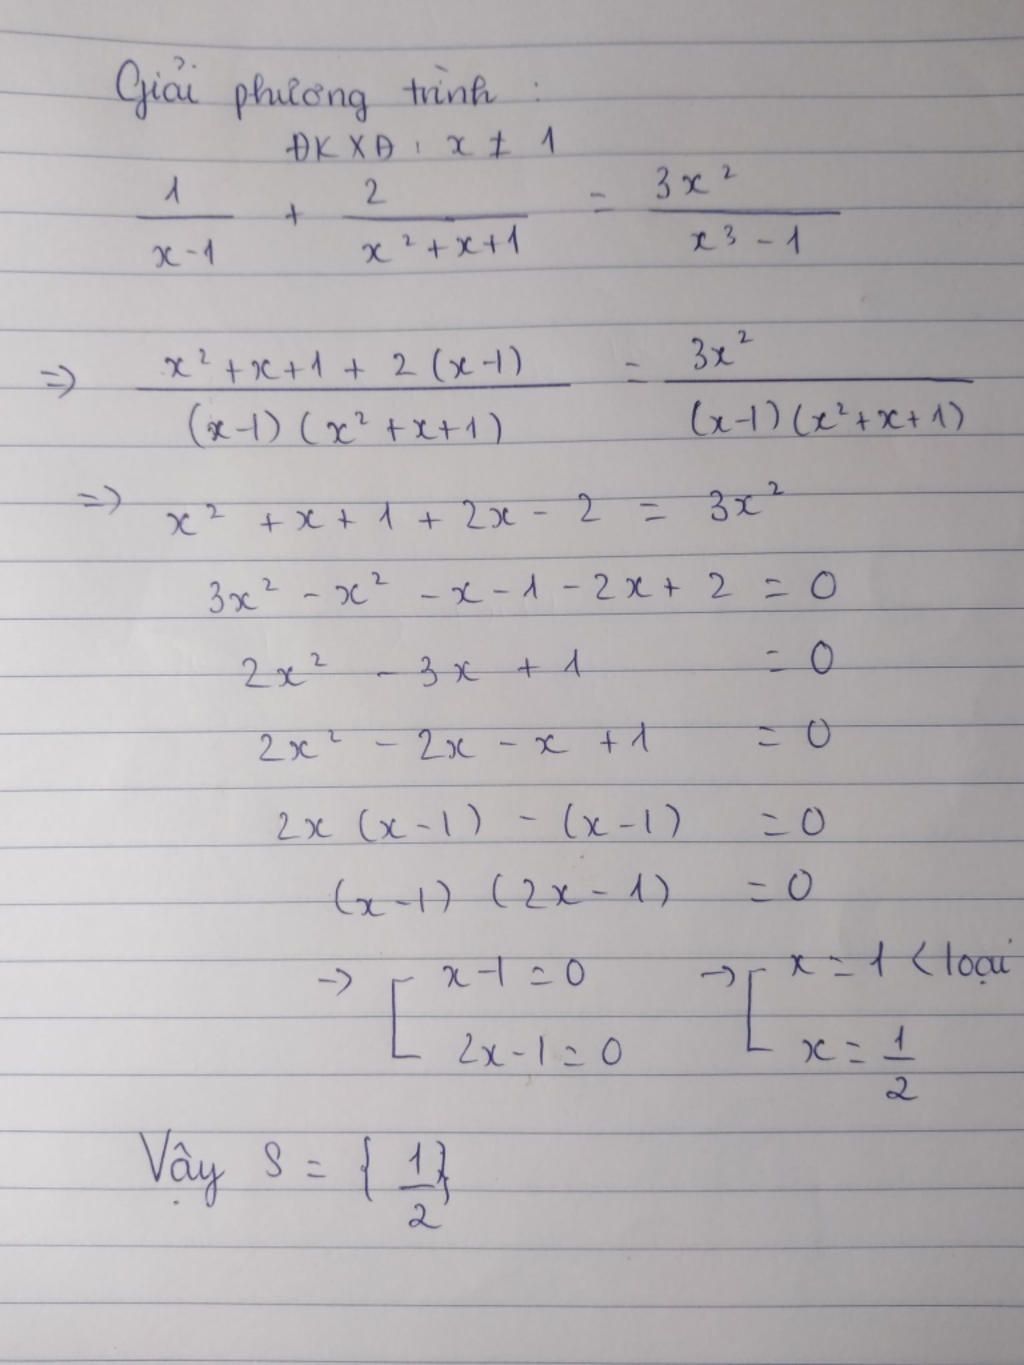 Giải phương trình :
ĐKXĐ : x ≠ 1
1/(x-1) + 2/(x²+x+1) = 3x²/(x³-1)
=> (x²+x+1+2(x-1))/((x-1)(x²+x+1)) = 3x²/((x-1)(x²+x+1))
=> x² + x + 1 + 2x - 2 = 3x²
3x² - x² - x - 1 - 2x + 2 = 0
2x² - 3x + 1 = 0
2x² - 2x - x + 1 = 0
2x (x-1) - (x-1) = 0
(x-1) (2x-1) = 0
→ [ x-1=0 → [ x=1 <loại
2x-1=0 x = 1/2
Vậy S = { 1/2 }